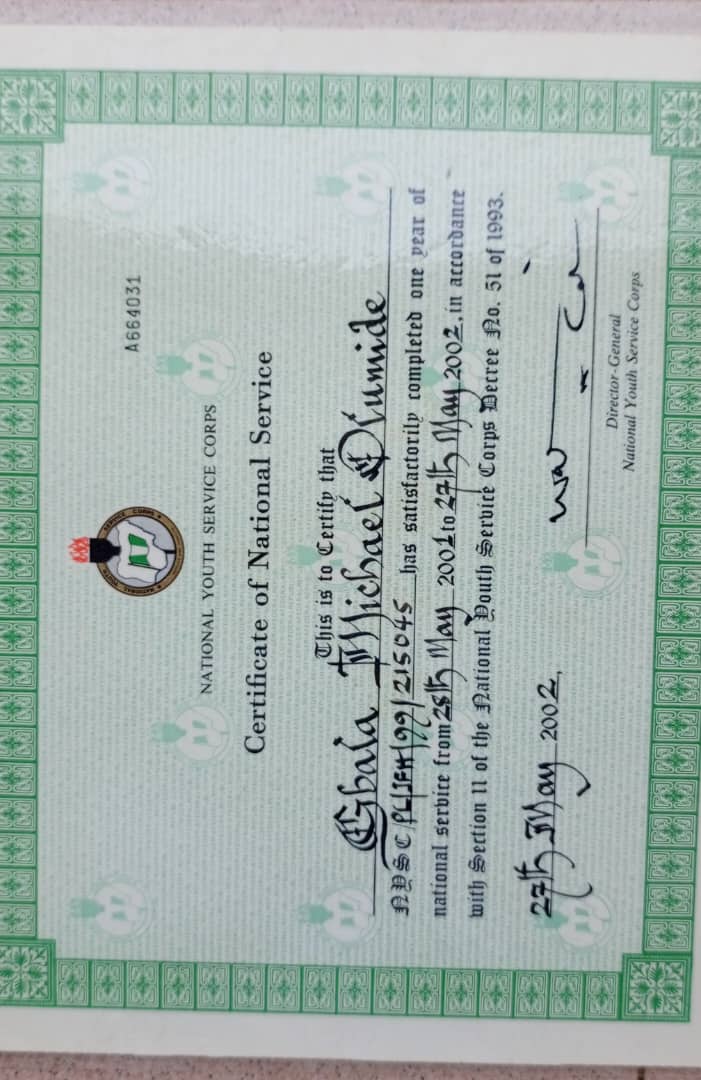 A664031
NATIONAL YOUTH SERVICE CORPS
Certificate of National Service
This is to Certify that
Gbala Michael Olumide
NYSC/PL/IFH/99/215045 has satisfactorily completed one year of
national service from 28th May 2001 to 27th May 2002, in accordance
with Section 11 of the National Youth Service Corps Decree No. 51 of 1993.
27th May 2002.
Director-General
National Youth Service Corps